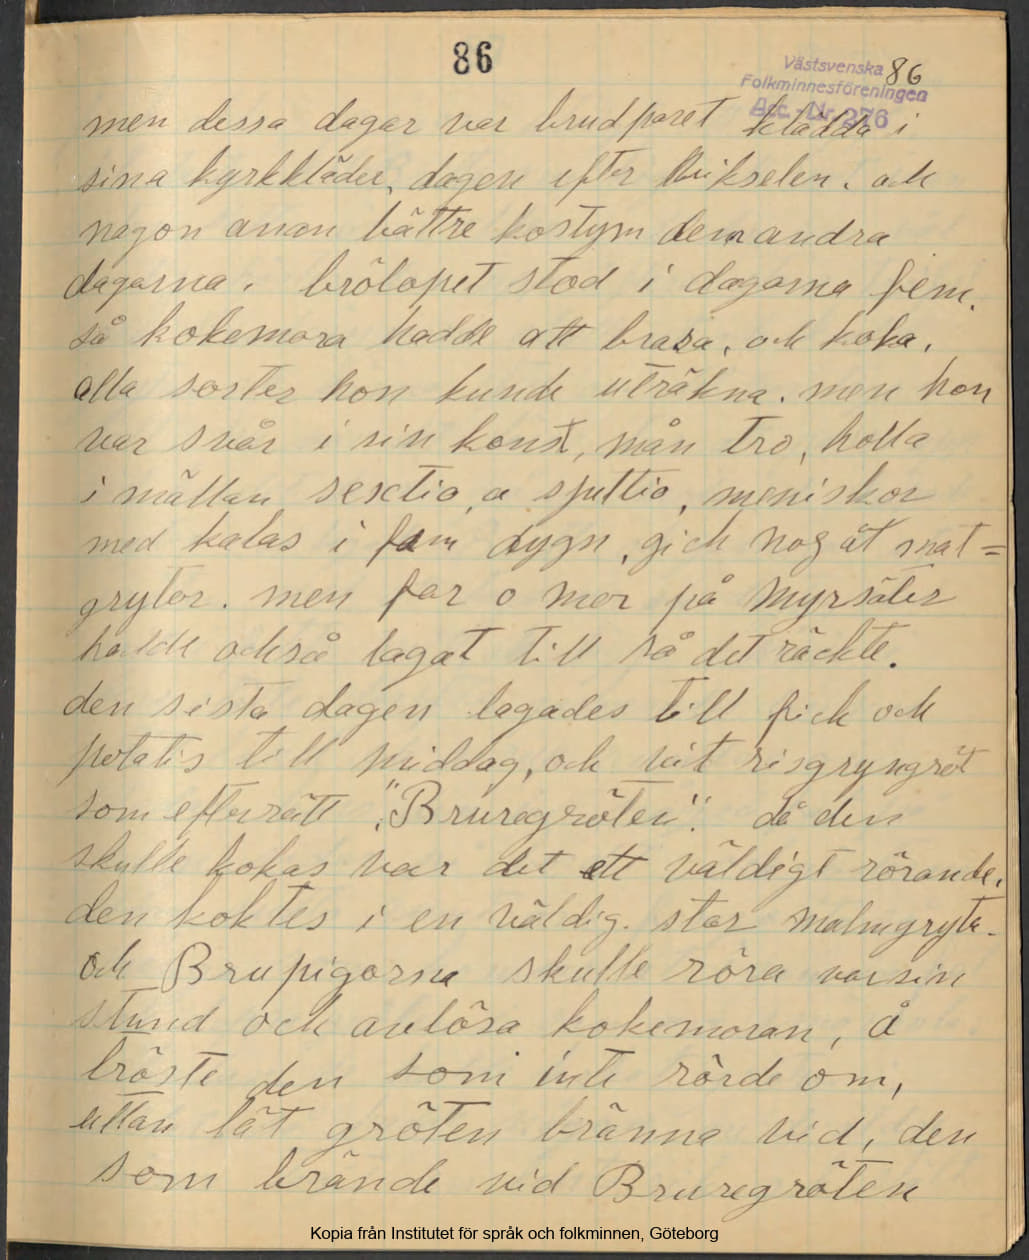 86
Västsvenska 86
Folkminnesföreningen
Acc.-Nr. 276
men dessa dagar var brudparet klädda i
sina kyrkkläder, dagen efter vikselen. och
nagon anan bättre kostym den andra
dagarna. brölopet stod i dagarna fem.
så kokemora hadde att brasa, och koka,
alla sorter hon kunde uträkna. men hon
var svår i sin konst, mån tro, holla
i mältan sexctio, a sjuttio, meniskor
med kalas i fem dygn, gick nog åt mat=
grytor. men far o mor på Myrsäter
hadde också lagat till så det räckte.
den sista dagen lagades till fick och
potatis till middag, och vit risgryngröt
som efterrätt "Bruregröten". då den
skulle kokas var det ett väldigt rörande.
den koktes i en väldig. stor malmgryta.
och Brupigorna skulle röra varsin
stund och avlösa kokemoran, å
tröste den som inte rörde om,
uttan lät gröten bränna vid, den
som brände vid Bruregröten
Kopia från Institutet för språk och folkminnen, Göteborg